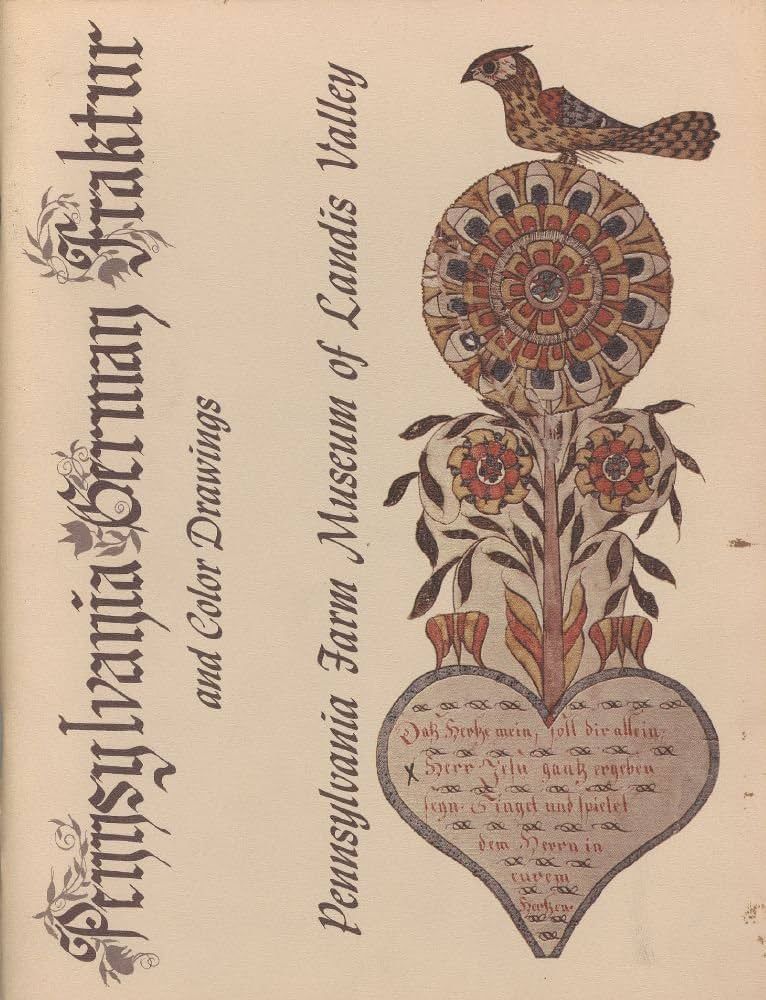 Pennsylvania German Fraktur
and Color Drawings
Pennsylvania Farm Museum of Landis Valley
Daß Hertze mein, soll dir allein,
x Herr Jesu gantz ergeben
seyn. Singet und spielet
dem Herrn in
eurem
Hertzen.